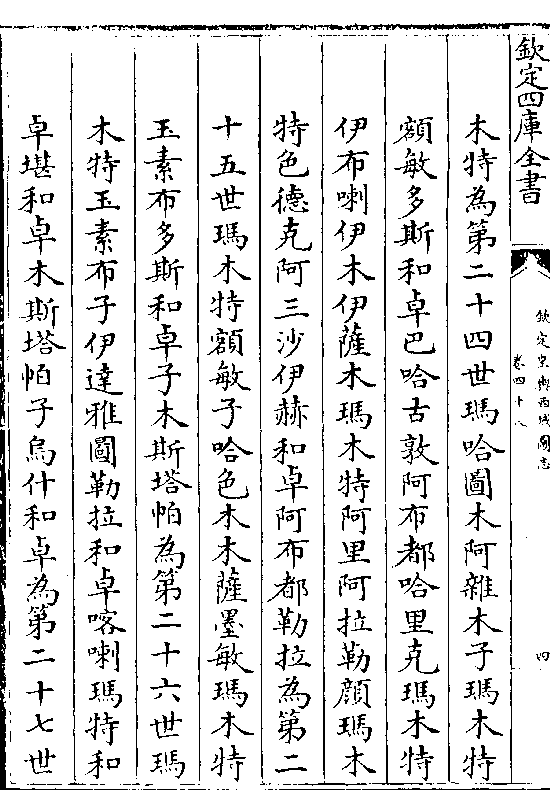 欽定四庫全書
欽定皇輿西域圖志
卷四十八
四
木特為第二十四世瑪哈圖木阿雜木子瑪木特
額敏多斯和卓巴哈古敦阿布都哈里克瑪木特
伊布喇伊木伊薩木瑪木特阿里阿拉勒顏瑪木
特色德克阿三沙伊赫和卓阿布都勒拉為第二
十五世瑪木特額敏子哈色木木薩墨敏瑪木特
玉素布多斯和卓子木斯塔帕為第二十六世瑪
木特玉素布子伊達雅圖勒拉和卓喀喇瑪特和
卓堪和卓木斯塔帕子烏什和卓為第二十七世